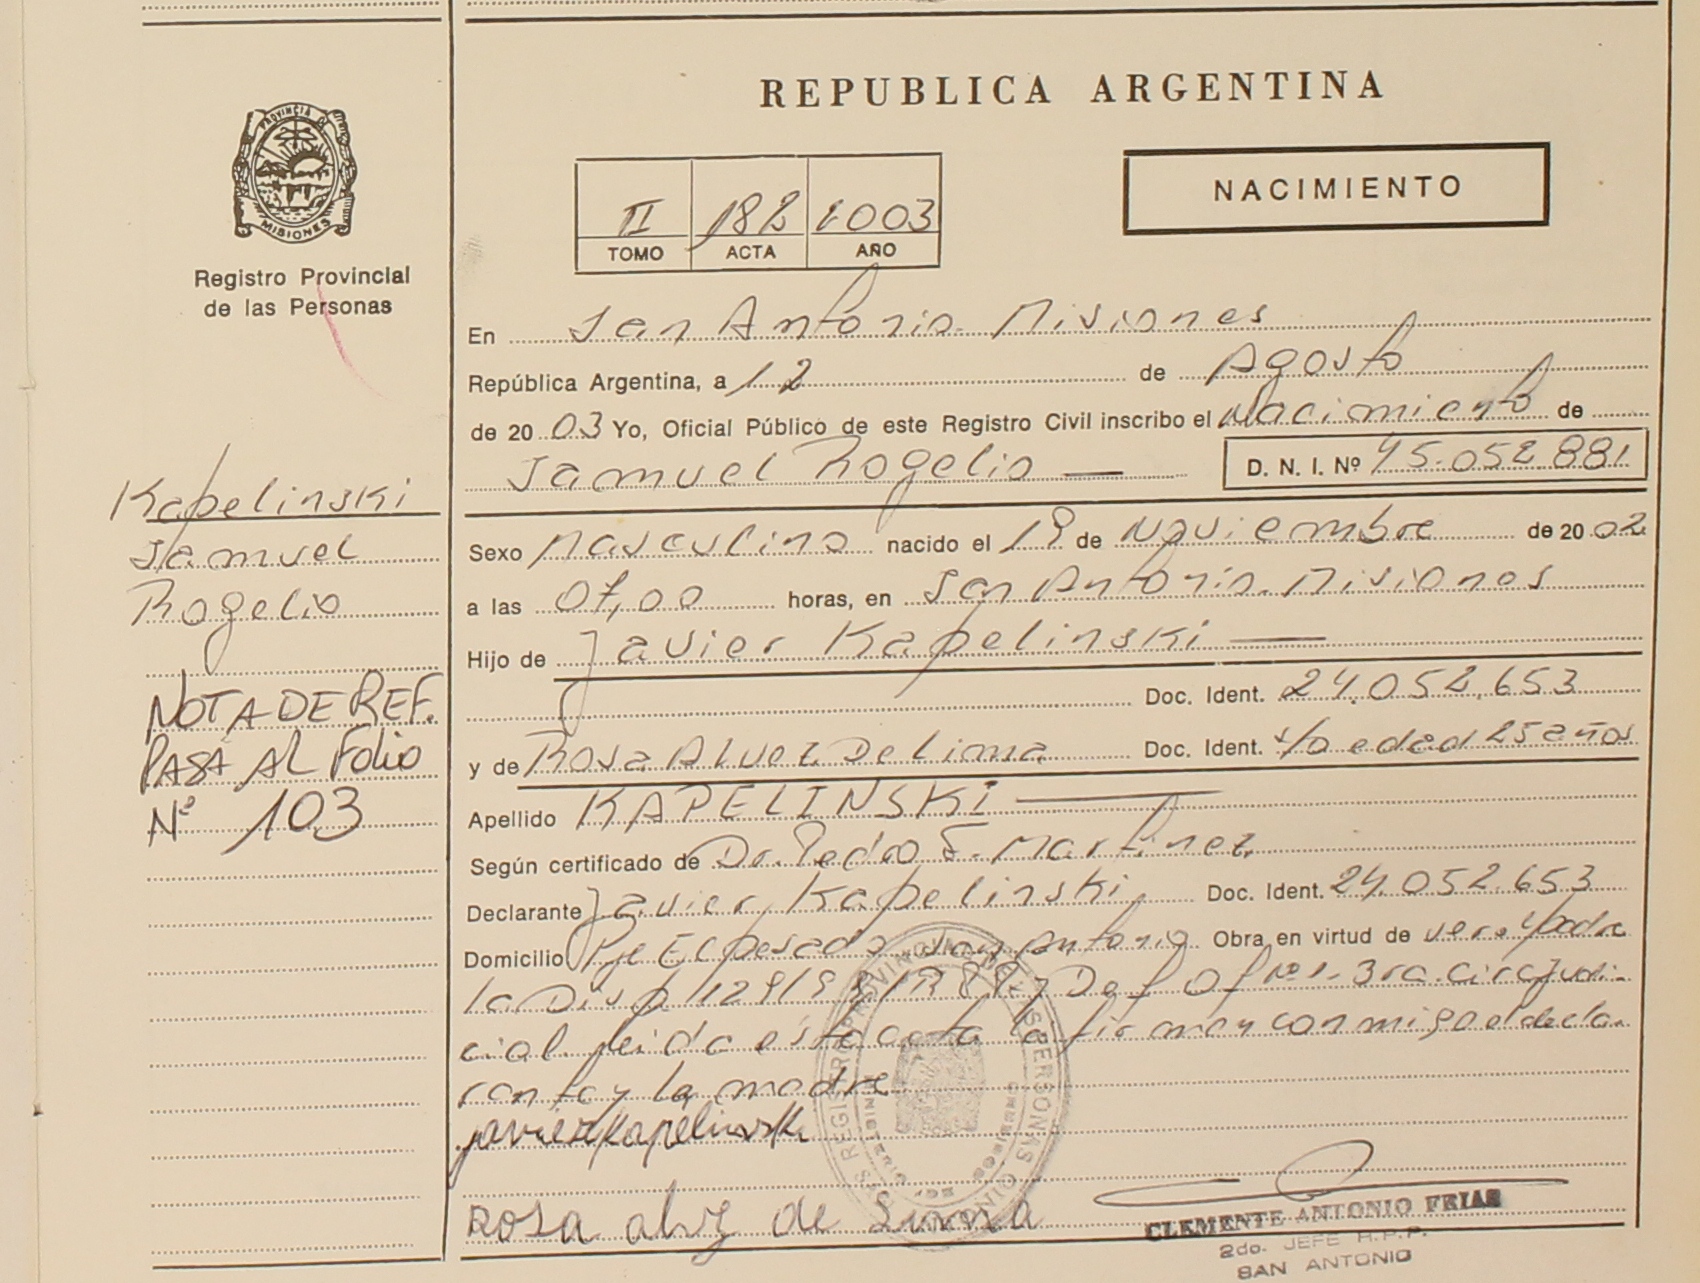 PROVINCIA DE
MISIONES
Registro Provincial
de las Personas
REPUBLICA ARGENTINA
II 182 2003
TOMO ACTA AÑO
NACIMIENTO
En San Antonio Misiones
República Argentina, a 12 de Agosto
de 2003 Yo, Oficial Público de este Registro Civil inscribo el Nacimiento de
Samuel Rogelio D. N. I. Nº 45.052 881
Kapelinski
Samuel
Rogelio
NOTA DE REF.
PASA AL Folio
Nº 103
Sexo Masculino nacido el 19 de Noviembre de 2002
a las 07,00 horas, en San Antonio. Misiones
Hijo de Javier Kapelinski
Doc. Ident. 24.052.653
y de Rosa Alvez De Lima Doc. Ident. s/o edad 25 años
Apellido KAPELINSKI
Según certificado de Dr. Pedro F. Martinez
Declarante Javier Kapelinski Doc. Ident. 24.052.653
Domicilio Pje El pesado San Antonio Obra en virtud de ser el padre
la Disp 129/99 Def Of Nº 1. 3ra. circ Judi-
cial leida esta acta la firman conmigo el decla
rante y la madre
javier kapelinski
Rosa alvz de Lima
CLEMENTE ANTONIO FRIAS
2do. JEFE R.P.P.
SAN ANTONIO